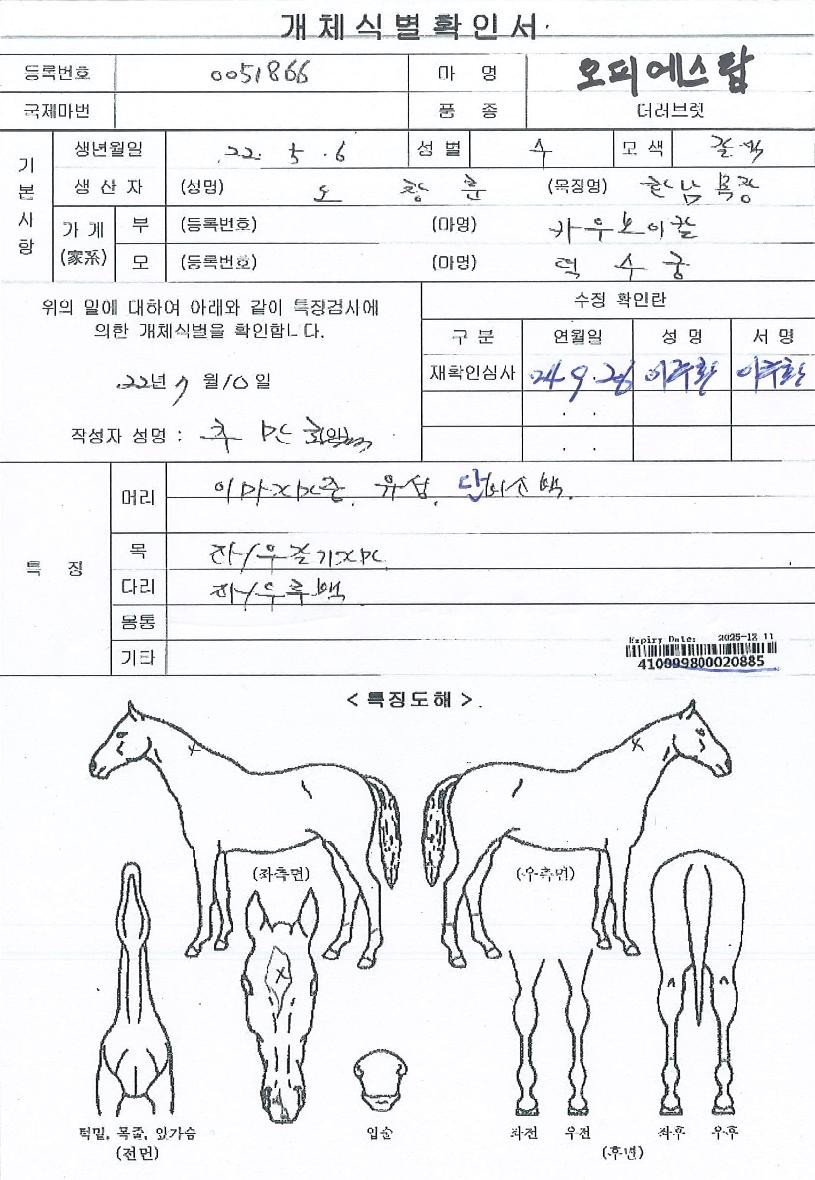 개체식별확인서
등록번호 0051866 마 명 오피에스탑
국제마번 품 종 더러브렛
기본사항
생년월일 22. 5. 6 성별 수 모색 갈색
생 산 자 (성명) 오 창 훈 (목장명) 한남목장
가계 (家系) 부 (등록번호) (마명) 카우보이칼
모 (등록번호) (마명) 덕수궁
위의 말에 대하여 아래와 같이 특징검사에
의한 개체식별을 확인합니다.
22년 7월 10일
작성자 성명 :
수징 확인란
구 분 연월일 성 명 서 명
재확인심사 24.9.26 이주환 이주환
특 징
머리 이마 유성, 단비소백
목 좌/우
다리 좌/우후백
몸통
기타
Expiry Date: 2025-12 11
410099800020885
< 특징도해 >
(좌측면) (우측면)
턱밑, 목줄, 앞가슴
(전면)
입술
좌전 우전 좌후 우후
(후면)